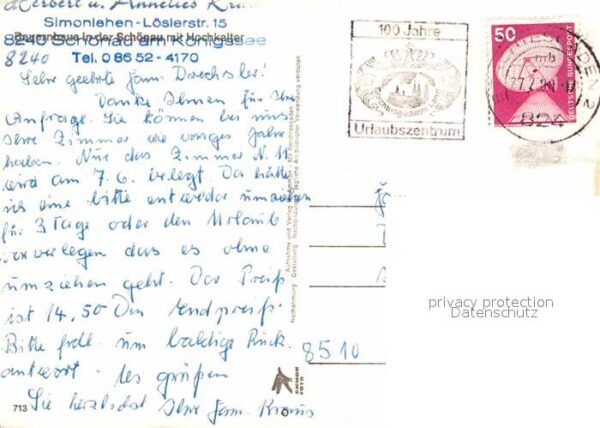 Herbert u. Annelies Kraus
Simonlehen-Löslerstr. 15
Bauernhaus in der Schönau mit Hochkalter
8240 Schönau am Königssee
8240
Tel. 0 86 52 - 4170
Sehr geehrte Fam. Drechsler!
Danke Ihnen für Ihre
Anfrage. Sie können bei uns
Ihre Zimmer wie voriges Jahr
haben. Nur das Zimmer N. 11
wird am 7. 6. belegt. Da hätte
ich eine bitte entweder umziehen
für 3 Tage oder den Urlaub
vorverlegen das es ohne
umziehen geht. Der Preiß
ist 14,50 Dm endpreiß.
Bitte frdl. um baldige Rück.
antwort. Es grüßen
Sie herzlichst Ihre Fam. Kraus
713
100 Jahre
Urlaubszentrum
50
DEUTSCHE BUNDESPOST
824
8510
Aufnahme und Verlag
ANNOR
FOTO
privacy protection
Datenschutz